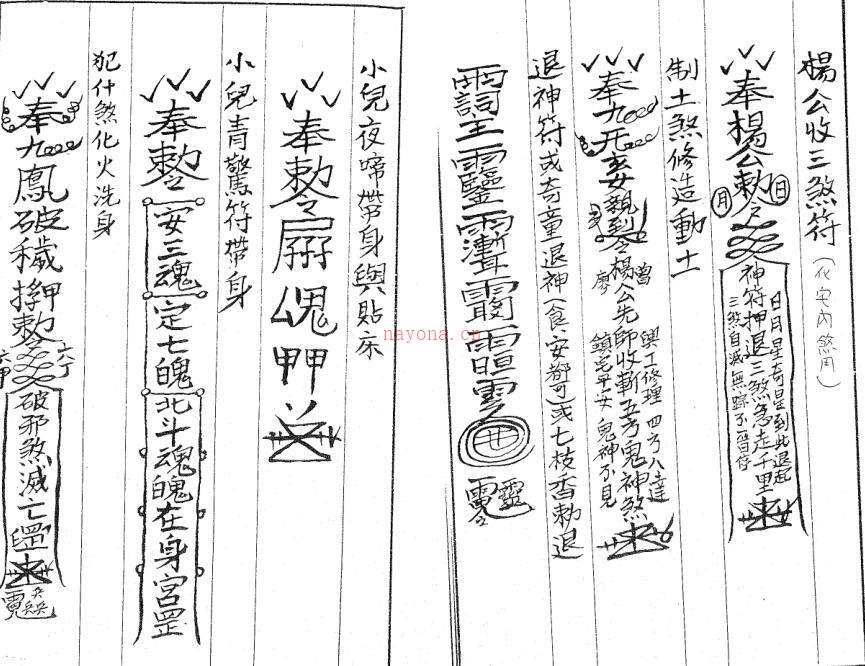 楊公收三煞符(化宅內煞用)
奉楊公勅令
日
月
日月星奇星到此退起
神符押退三煞急走千里
三煞自滅無踪不留停
制土煞修造動土
奉九天玄女親到
曾
廖
楊公先師收斬五方鬼神煞
興工修理四方八達
鎮宅平安鬼神不見
退神符或奇童退神(食、安都可)或七枝香勅退
小兒夜啼帶身與貼床
奉勅令
小兒青驚符帶身
奉勅令安三魂定七魄北斗魂魄在身宮罡
犯什煞化火洗身
奉九鳳破穢押勅令
六丁
六甲
破邪煞滅亡罡
nayona.cn